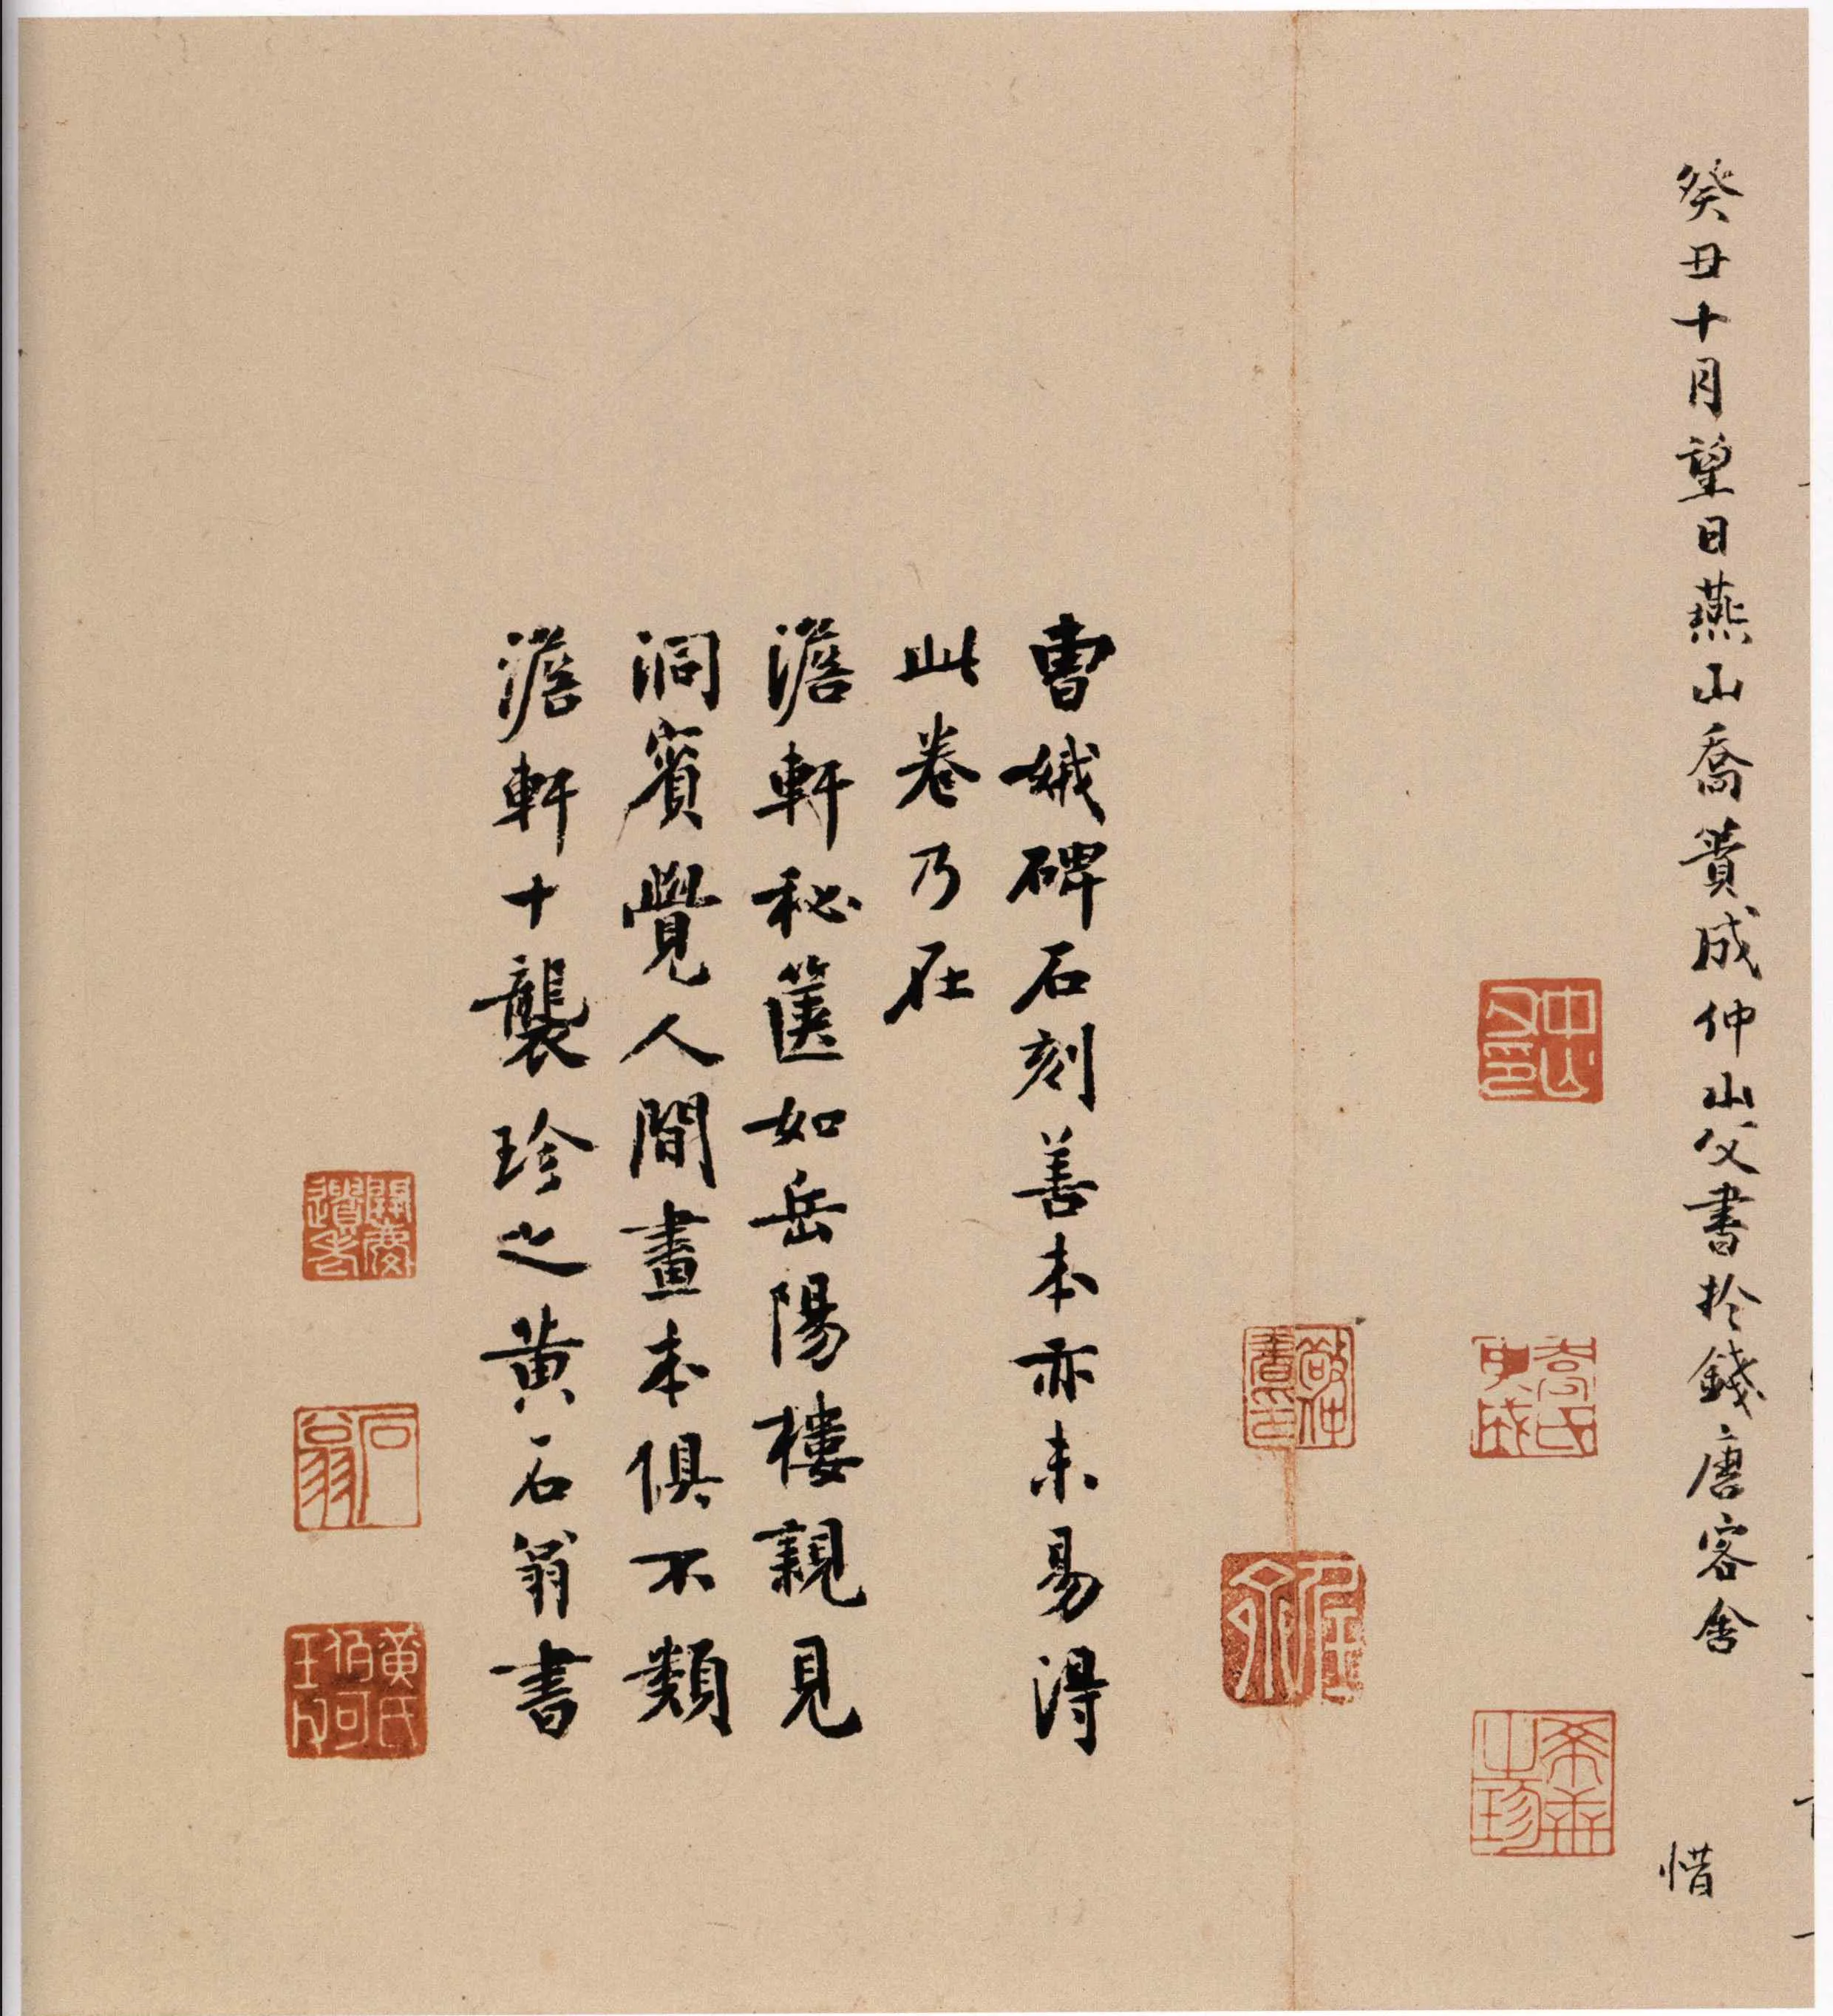 癸丑十月望日燕山喬簣成仲山父書於錢唐客舍
惜
曹娥碑石刻善本亦未易得
此卷乃在
澹軒秘篋如岳陽樓親見
洞賓覺人間畫本俱不類
澹軒十襲珍之黄石翁書
石翁
黄氏